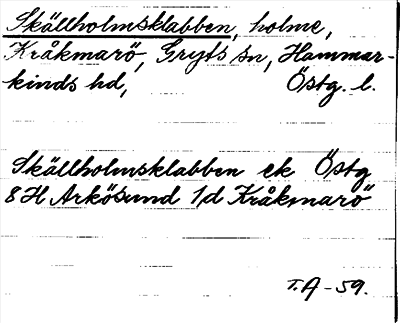 Skällholmsklabben, holme,
Kråkmarö, Gryts sn, Hammar-
kinds hd, Östg. l.
Skällholmsklabben ek Östg
8H Arkösund 1/d Kråkmarö
T.A-59.